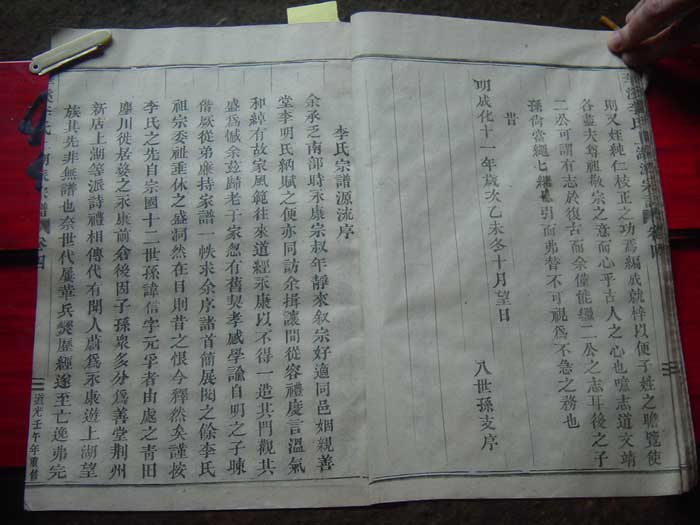 則又姪純仁校正之功焉編成就梓以便子姓之瞻覽使
各盡夫尊祖敬宗之意而心乎古人之心也噫志道文靖
二公可謂有志於復古而余僅能繼二公之志耳後之子
孫尚當繩其繼引而弗替不可視爲不急之務也
昔
明成化十一年歲次乙未冬十月望日
八世孫支序
李氏宗譜源流序
余承乏南部時永康宗叔年靜來叙宗好適同邑姻親善
堂李明氏納賦之便亦同訪余揖讓間從容禮度言溫氣
和綽有故家風範往來道經永康以不得一造其門觀其
盛爲憾余玆歸老于家忽有舊契孝感學諭自明之子陳
偕厥從弟廉持家譜一帙求余序諸首簡展閱之餘李氏
祖宗委祉垂休之盛洞然在目則昔之恨今釋然矣謹按
李氏之先自宗國十二世孫諱信字元孚者由處之青田
塵川徙居婺之永康前倉後因子孫衆多分爲善堂荆州
新店上湖等派詩禮相傳代有聞人蔚爲永康遊上湖望
族其先非無譜也奈世代屢革兵燹歷經遂至亡逸弗完
道光壬午年重修